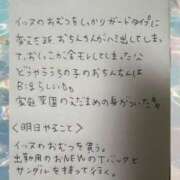 イッヌのおむつをしっかりガードタイプに
おちんちんがハミ出してしまっ
て、おしっこが全モレしてしまった
どうやらうちの子のおちんちんは
らしいも。
家庭菜園のえだまめの身がついた
<明日やること>
イッヌのおむつを買う。
出勤用のおNEWのTバックと
サンダルを持って行く。